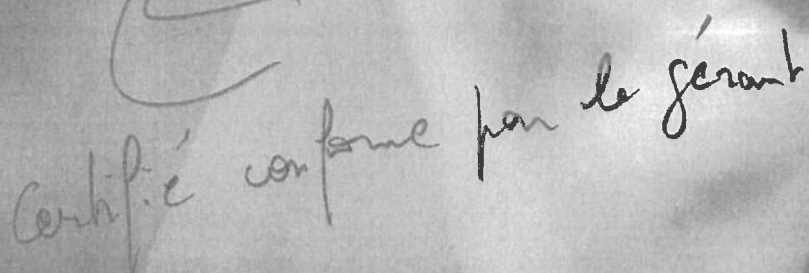 Certifié conforme par le gérant